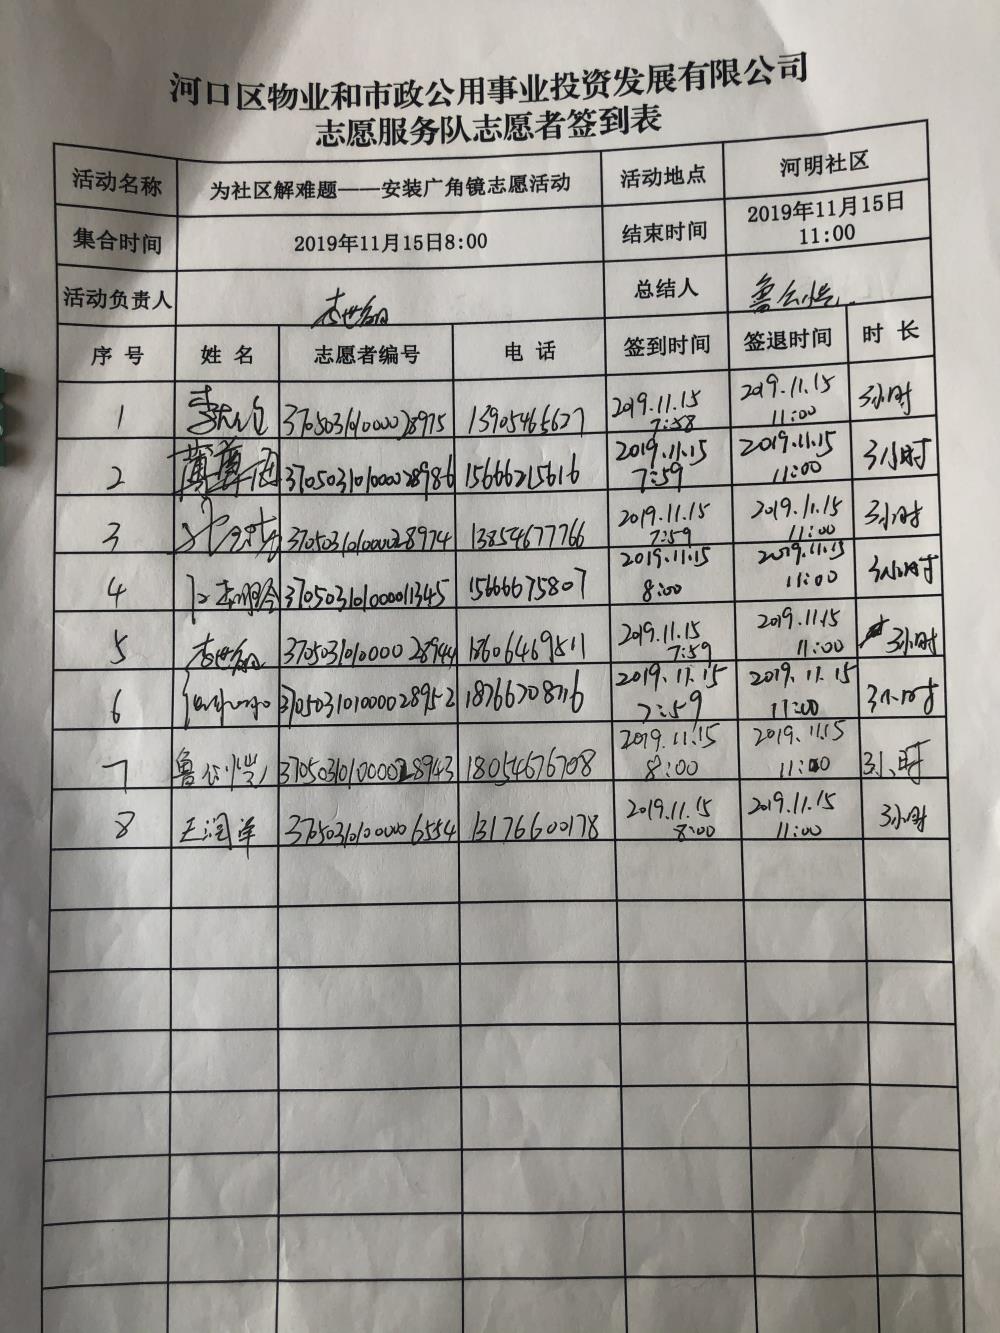 河口区物业和市政公用事业投资发展有限公司
志愿服务队志愿者签到表
活动名称 为社区解难题——安装广角镜志愿活动 活动地点 河明社区
集合时间 2019年11月15日8:00 结束时间 2019年11月15日
11:00
活动负责人 总结人
序号 姓名 志愿者编号 电话 签到时间 签退时间 时长
1 13905465627 2019.11.15 7:58 2019.11.15 11:00 3小时
2 15666215616 2019.11.15 7:59 2019.11.15 11:00 3小时
3 370503101000028974 13854677766 2019.11.15 7:59 2019.11.15 11:00 3小时
4 15666675807 2019.11.15 8:00 2019.11.15 11:00 3小时
5 370503101000028944 18606469511 2019.11.15 7:59 2019.11.15 11:00 3小时
6 370503101000028952 2019.11.15 7:59 2019.11.15 11:00 3小时
7 370503101000028943 18054676708 2019.11.15 8:00 2019.11.15 11:00 3小时
8 王润洋 13176600178 2019.11.15 8:00 2019.11.15 11:00 3小时